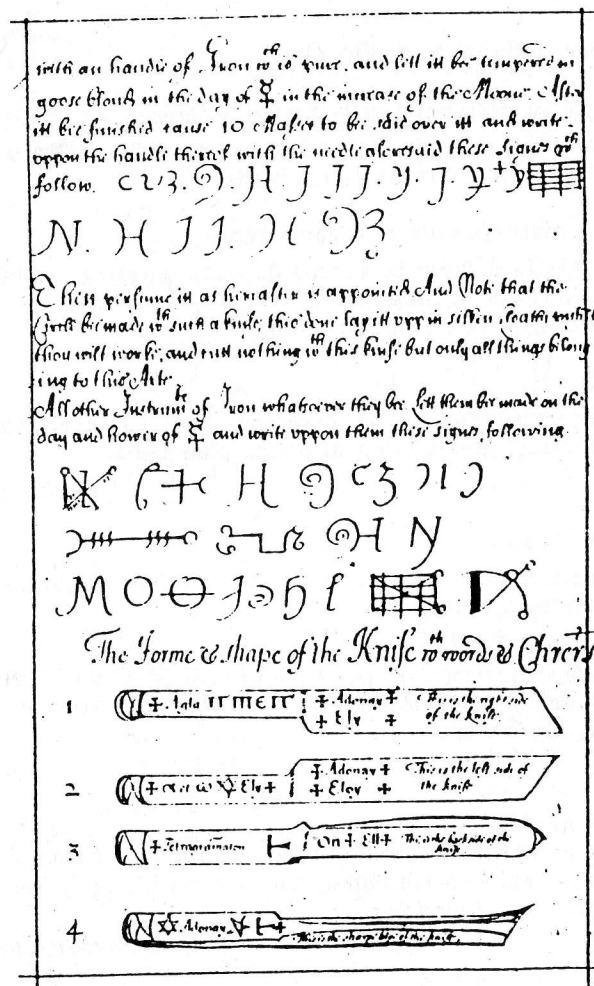 with an handle of Iron wᶜʰ is pure. and lett itt bee tempered in
goose bloud in the day of ☿ in the increase of the Moone. After
itt bee finished cause 10 Masses to bee said over itt and write
uppon the handle thereof with the needle aforesaid these signes wᶜʰ
follow.
Then perfume itt as hereafter is appointed And Note that the
Circle bee made wᵗʰ such a knife; this done lay itt upp in silken
thou wilt worke, and cutt nothing wᵗʰ this knife but only all things belong
ing to this Arte.
All other Instrumᵗˢ of Iron whatsoever they bee lett them bee made on the
day and hower of ☿ and write uppon them these signes, following.
The forme & shape of the Knife wᵗʰ words &
1 + Agla + Adonay + This is the right side
+ Ely + of the knife.
2 + ω Ely + + Adonay + This is the left side of
+ Eloy + the knife
3 + On + Ell + This is the back side of the
knife
4 ✡ Adonay This is the sharpe side of the knife.